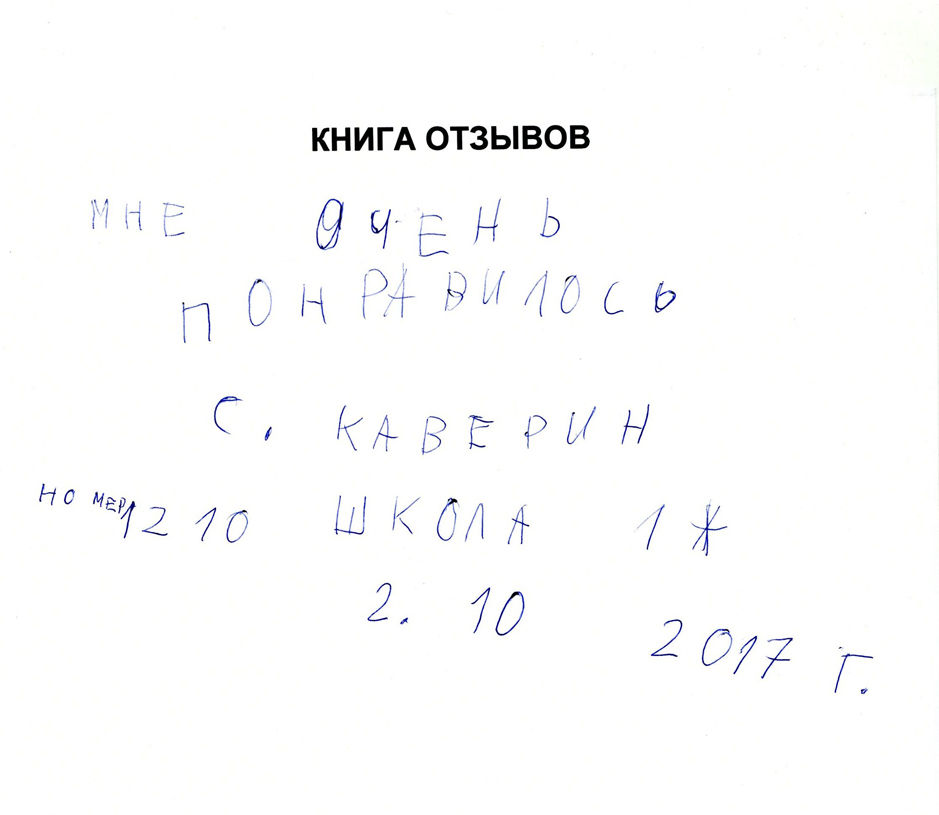 КНИГА ОТЗЫВОВ
МНЕ ОЧЕНЬ
ПОНРАВИЛОСЬ
С. КАВЕРИН
НОМЕР 1210 ШКОЛА 1 Ж
2. 10 2017 Г.